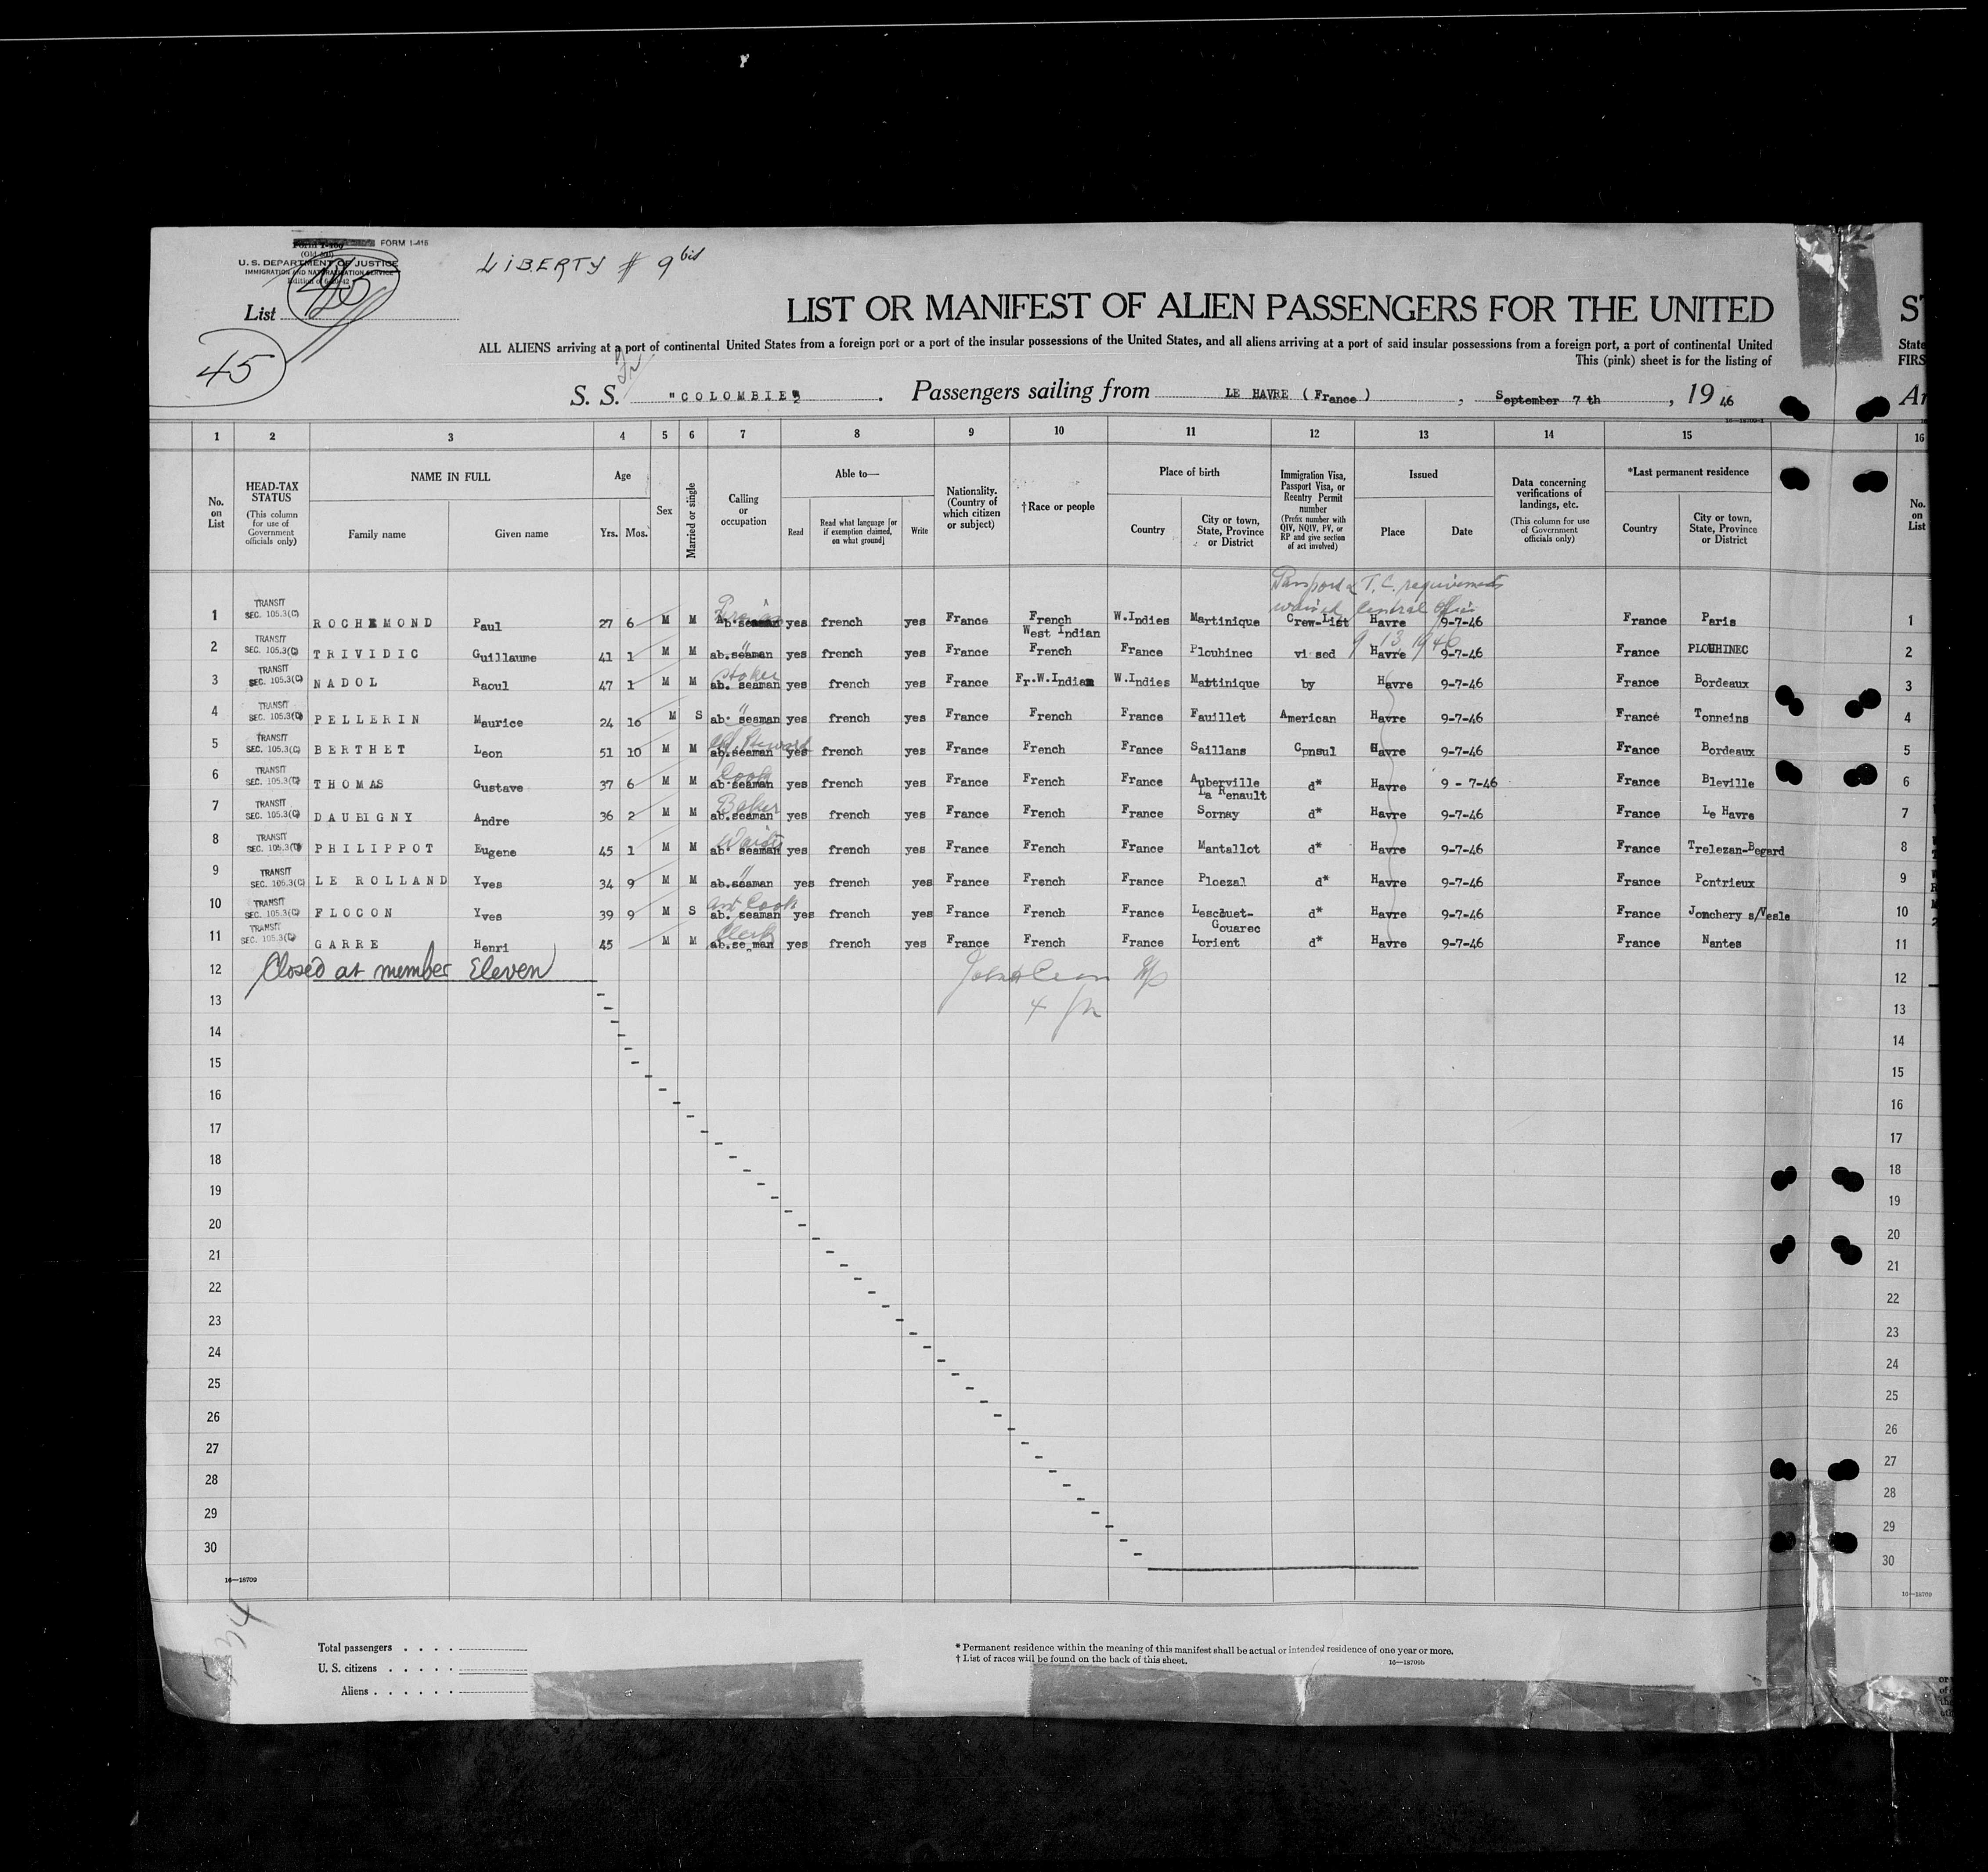 FORM I-415
(Old 500)
U. S. DEPARTMENT OF JUSTICE
IMMIGRATION AND NATURALIZATION SERVICE
LIBERTY # 9 bis
List 45
45
LIST OR MANIFEST OF ALIEN PASSENGERS FOR THE UNITED
ST
ALL ALIENS arriving at a port of continental United States from a foreign port or a port of the insular possessions of the United States, and all aliens arriving at a port of said insular possessions from a foreign port, a port of continental United
State
This (pink) sheet is for the listing of
FIRS
S. S. "COLOMBIE" . Passengers sailing from LE HAVRE ( France ) , September 7 th , 19 46
Ar
16—18709-1
1 2 3 4 5 6 7 8 9 10 11 12 13 14 15 16
No. on List
HEAD-TAX STATUS (This column for use of Government officials only)
NAME IN FULL Family name Given name
Age Yrs. Mos.
Sex
Married or single
Calling or occupation
Able to— Read Read what language [or if exemption claimed, on what ground] Write
Nationality. (Country of which citizen or subject)
†Race or people
Place of birth Country City or town, State, Province or District
Immigration Visa, Passport Visa, or Reentry Permit number (Prefix number with QIV, NQIV, PV, or RP and give section of act involved)
Issued Place Date
Data concerning verifications of landings, etc. (This column for use of Government officials only)
*Last permanent residence Country City or town, State, Province or District
No. on List
Passport & T. C. requirements
waived Central Office
9 13 1946
1 TRANSIT SEC. 105.3(C) ROCHEMOND Paul 27 6 M M Ab.seaman yes french yes France French West Indian W.Indies Martinique Crew-List Havre 9-7-46 France Paris 1
2 TRANSIT SEC. 105.3(C) TRIVIDIC Guillaume 41 1 M M ab.seaman " yes french yes France French France Plouhinec vised Havre 9-7-46 France PLOUHINEC 2
3 TRANSIT SEC. 105.3(C) NADOL Raoul 47 1 M M ab. seaman Stoker yes french yes France Fr.W.Indian W.Indies Martinique by Havre 9-7-46 France Bordeaux 3
4 TRANSIT SEC. 105.3(C) PELLERIN Maurice 24 10 M S ab. seaman " yes french yes France French France Fauillet American Havre 9-7-46 France Tonneins 4
5 TRANSIT SEC. 105.3(C) BERTHET Leon 51 10 M M ab.seaman Steward yes french yes France French France Saillans Cpnsul Havre 9-7-46 France Bordeaux 5
6 TRANSIT SEC. 105.3(C) THOMAS Gustave 37 6 M M ab.seaman Cook yes french yes France French France Auberville La Renault d* Havre 9 - 7-46 France Bleville 6
7 TRANSIT SEC. 105.3(C) DAUBIGNY Andre 36 2 M M ab.seaman Baker yes french yes France French France Sornay d* Havre 9-7-46 France Le Havre 7
8 TRANSIT SEC. 105.3(C) PHILIPPOT Eugene 45 1 M M ab. seaman Waiter yes french yes France French France Mantallot d* Havre 9-7-46 France Trelezan-Begard 8
9 TRANSIT SEC. 105.3(C) LE ROLLAND Yves 34 9 M M ab.seaman " yes french yes France French France Ploezal d* Havre 9-7-46 France Pontrieux 9
10 TRANSIT SEC. 105.3(C) FLOCON Yves 39 9 M S ab. seaman Cook yes french yes France French France Lescouet-Gouarec d* Havre 9-7-46 France Jonchery s/Vesle 10
11 TRANSIT SEC. 105.3(C) GARRE Henri 45 M M ab.se man Clerk yes french yes France French France Lorient d* Havre 9-7-46 France Nantes 11
12 Closed at member Eleven 12
13 13
14 14
15 15
16 16
17 17
18 18
19 19
20 20
21 21
22 22
23 23
24 24
25 25
26 26
27 27
28 28
29 29
30 30
16—18709 16—18709
Total passengers . . . .
U. S. citizens . . . . .
Aliens . . . . . .
* Permanent residence within the meaning of this manifest shall be actual or intended residence of one year or more.
† List of races will be found on the back of this sheet. 16—18709b